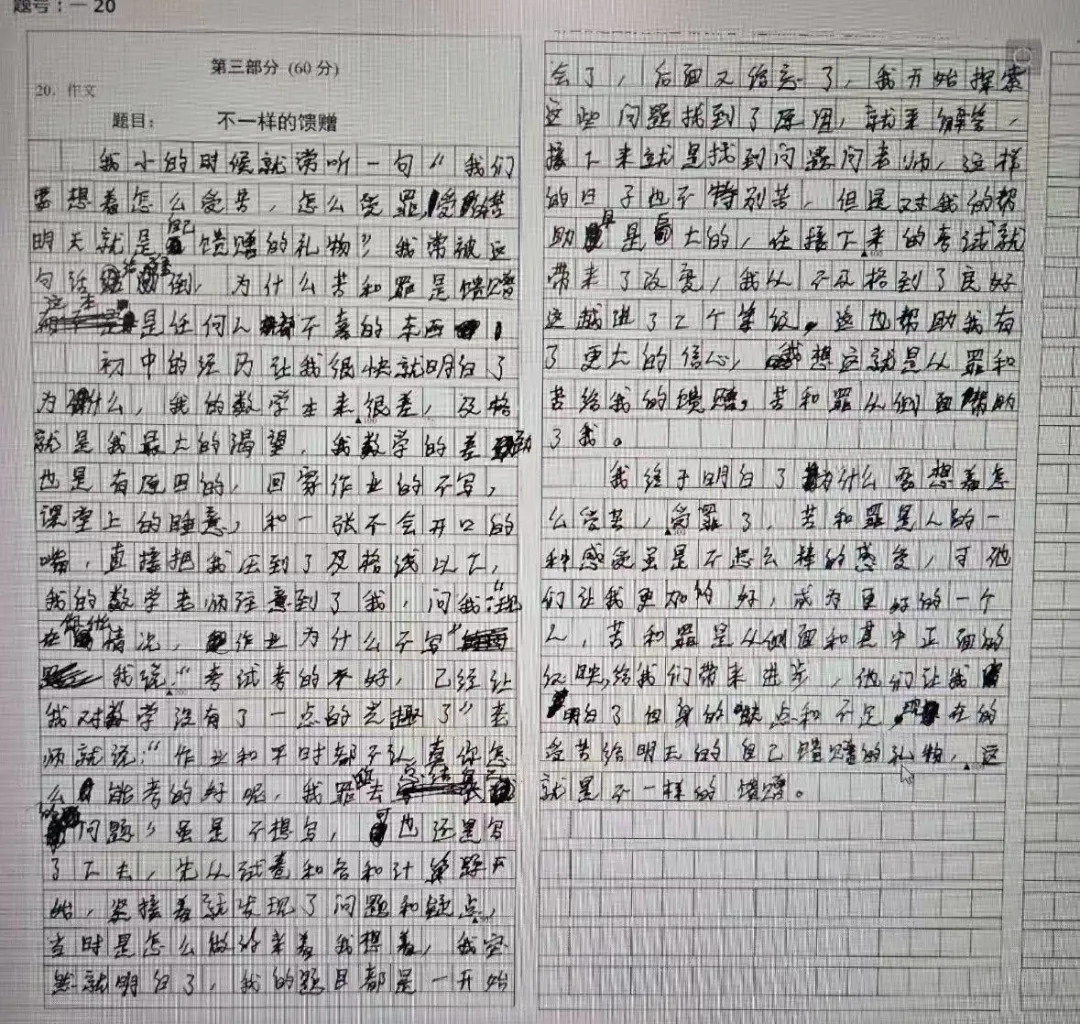 题号：一 20
第三部分 (60 分)
20. 作文
题目： 不一样的馈赠
我小的时候就常听一句“我们
要想着怎么受苦，怎么受罪，受苦
明天就是自己馈赠的礼物”我常被这
句话倒，为什么苦和罪是馈赠
这本是任何人都不喜的东西
初中的经历让我很快就明白了
为什么，我的数学本来很差，及格
就是我最大的渴望，我数学的差
也是有原因的，回家作业的不写，
课堂上的睡意，和一张不会开口的
嘴，直接把我压到了及格线以下，
我的数学老师注意到了我，问我“
情况，作业为什么不写”
我说：“考试考的不好，已经让
我对数学没有了一点的兴趣了”老
师就说：“作业和平时都不认真你怎
么能考的好呢，我罪去
的问题”虽是不想写，可也还是写
了下去，先从试卷和答和计算题开
始，紧接着就发现了问题和疑点，
当时是怎么做的来着我想着，我突
然就明白了，我的题目都是一开始
会了，后面又给忘了，我开始探索
这些问题找到了原因，就来解答，
接下来就是找到问题问老师，这样
的日子也不特别苦，但是对我的帮
助是巨大的，在接下来的考试就
带来了改变，我从不及格到了良好
这越进了2个等级，这也帮助我有
了更大的信心，我想这就是从罪和
苦给我的馈赠，苦和罪从侧面帮助
了我。
我终于明白了为什么要想着怎
么受苦，受罪了，苦和罪是人的一
种感受虽是不怎么棒的感受，可他
们让我更加的好，成为更好的一个
人，苦和罪是从侧面和其中正面的
反映，给我们带来进步，他们让我
明白了自身的缺点和不足，现在的
受苦给明天的自己馈赠的礼物，这
就是不一样的馈赠。